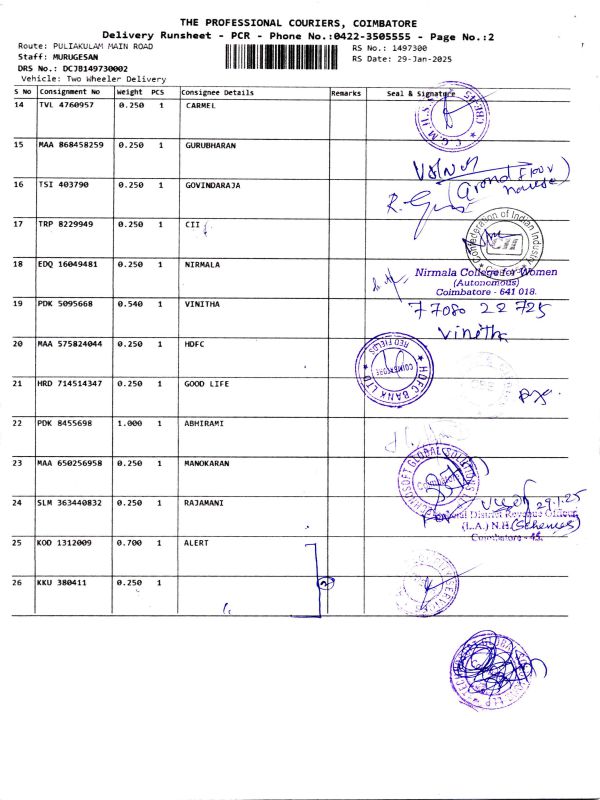 THE PROFESSIONAL COURIERS, COIMBATORE
Delivery Runsheet - PCR - Phone No.:0422-3505555 - Page No.:2
Route: PULIAKULAM MAIN ROAD
RS No.: 1497300
Staff: MURUGESAN
RS Date: 29-Jan-2025
DRS No.: DCJB149730002
Vehicle: Two Wheeler Delivery
S No Consignment No Weight PCS Consignee Details Remarks Seal & Signature
14 TVL 4760957 0.250 1 CARMEL
C.G.M.H.S.S
15 MAA 868458259 0.250 1 GURUBHARAN
16 TSI 403790 0.250 1 GOVINDARAJA
(Grond Floor
house)
17 TRP 8229949 0.250 1 CII
Confederation of Indian Industry
18 EDQ 16049481 0.250 1 NIRMALA
Nirmala College for Women
(Autonomous)
Coimbatore - 641 018.
19 PDK 5095668 0.540 1 VINITHA
77080 22725
Vinitha
20 MAA 575824044 0.250 1 HDFC
HDFC BANK LTD
RED FIELDS
COIMBATORE
21 HRD 714514347 0.250 1 GOOD LIFE
22 PDK 8455698 1.000 1 ABHIRAMI
23 MAA 650256958 0.250 1 MANOKARAN
GLOBAL
24 SLM 363440832 0.250 1 RAJAMANI
29.1.25
District Revenue Officer
(L.A.) N.H. (Schemes)
Coimbatore - 45.
25 KOD 1312009 0.700 1 ALERT
26 KKU 380411 0.250 1
2